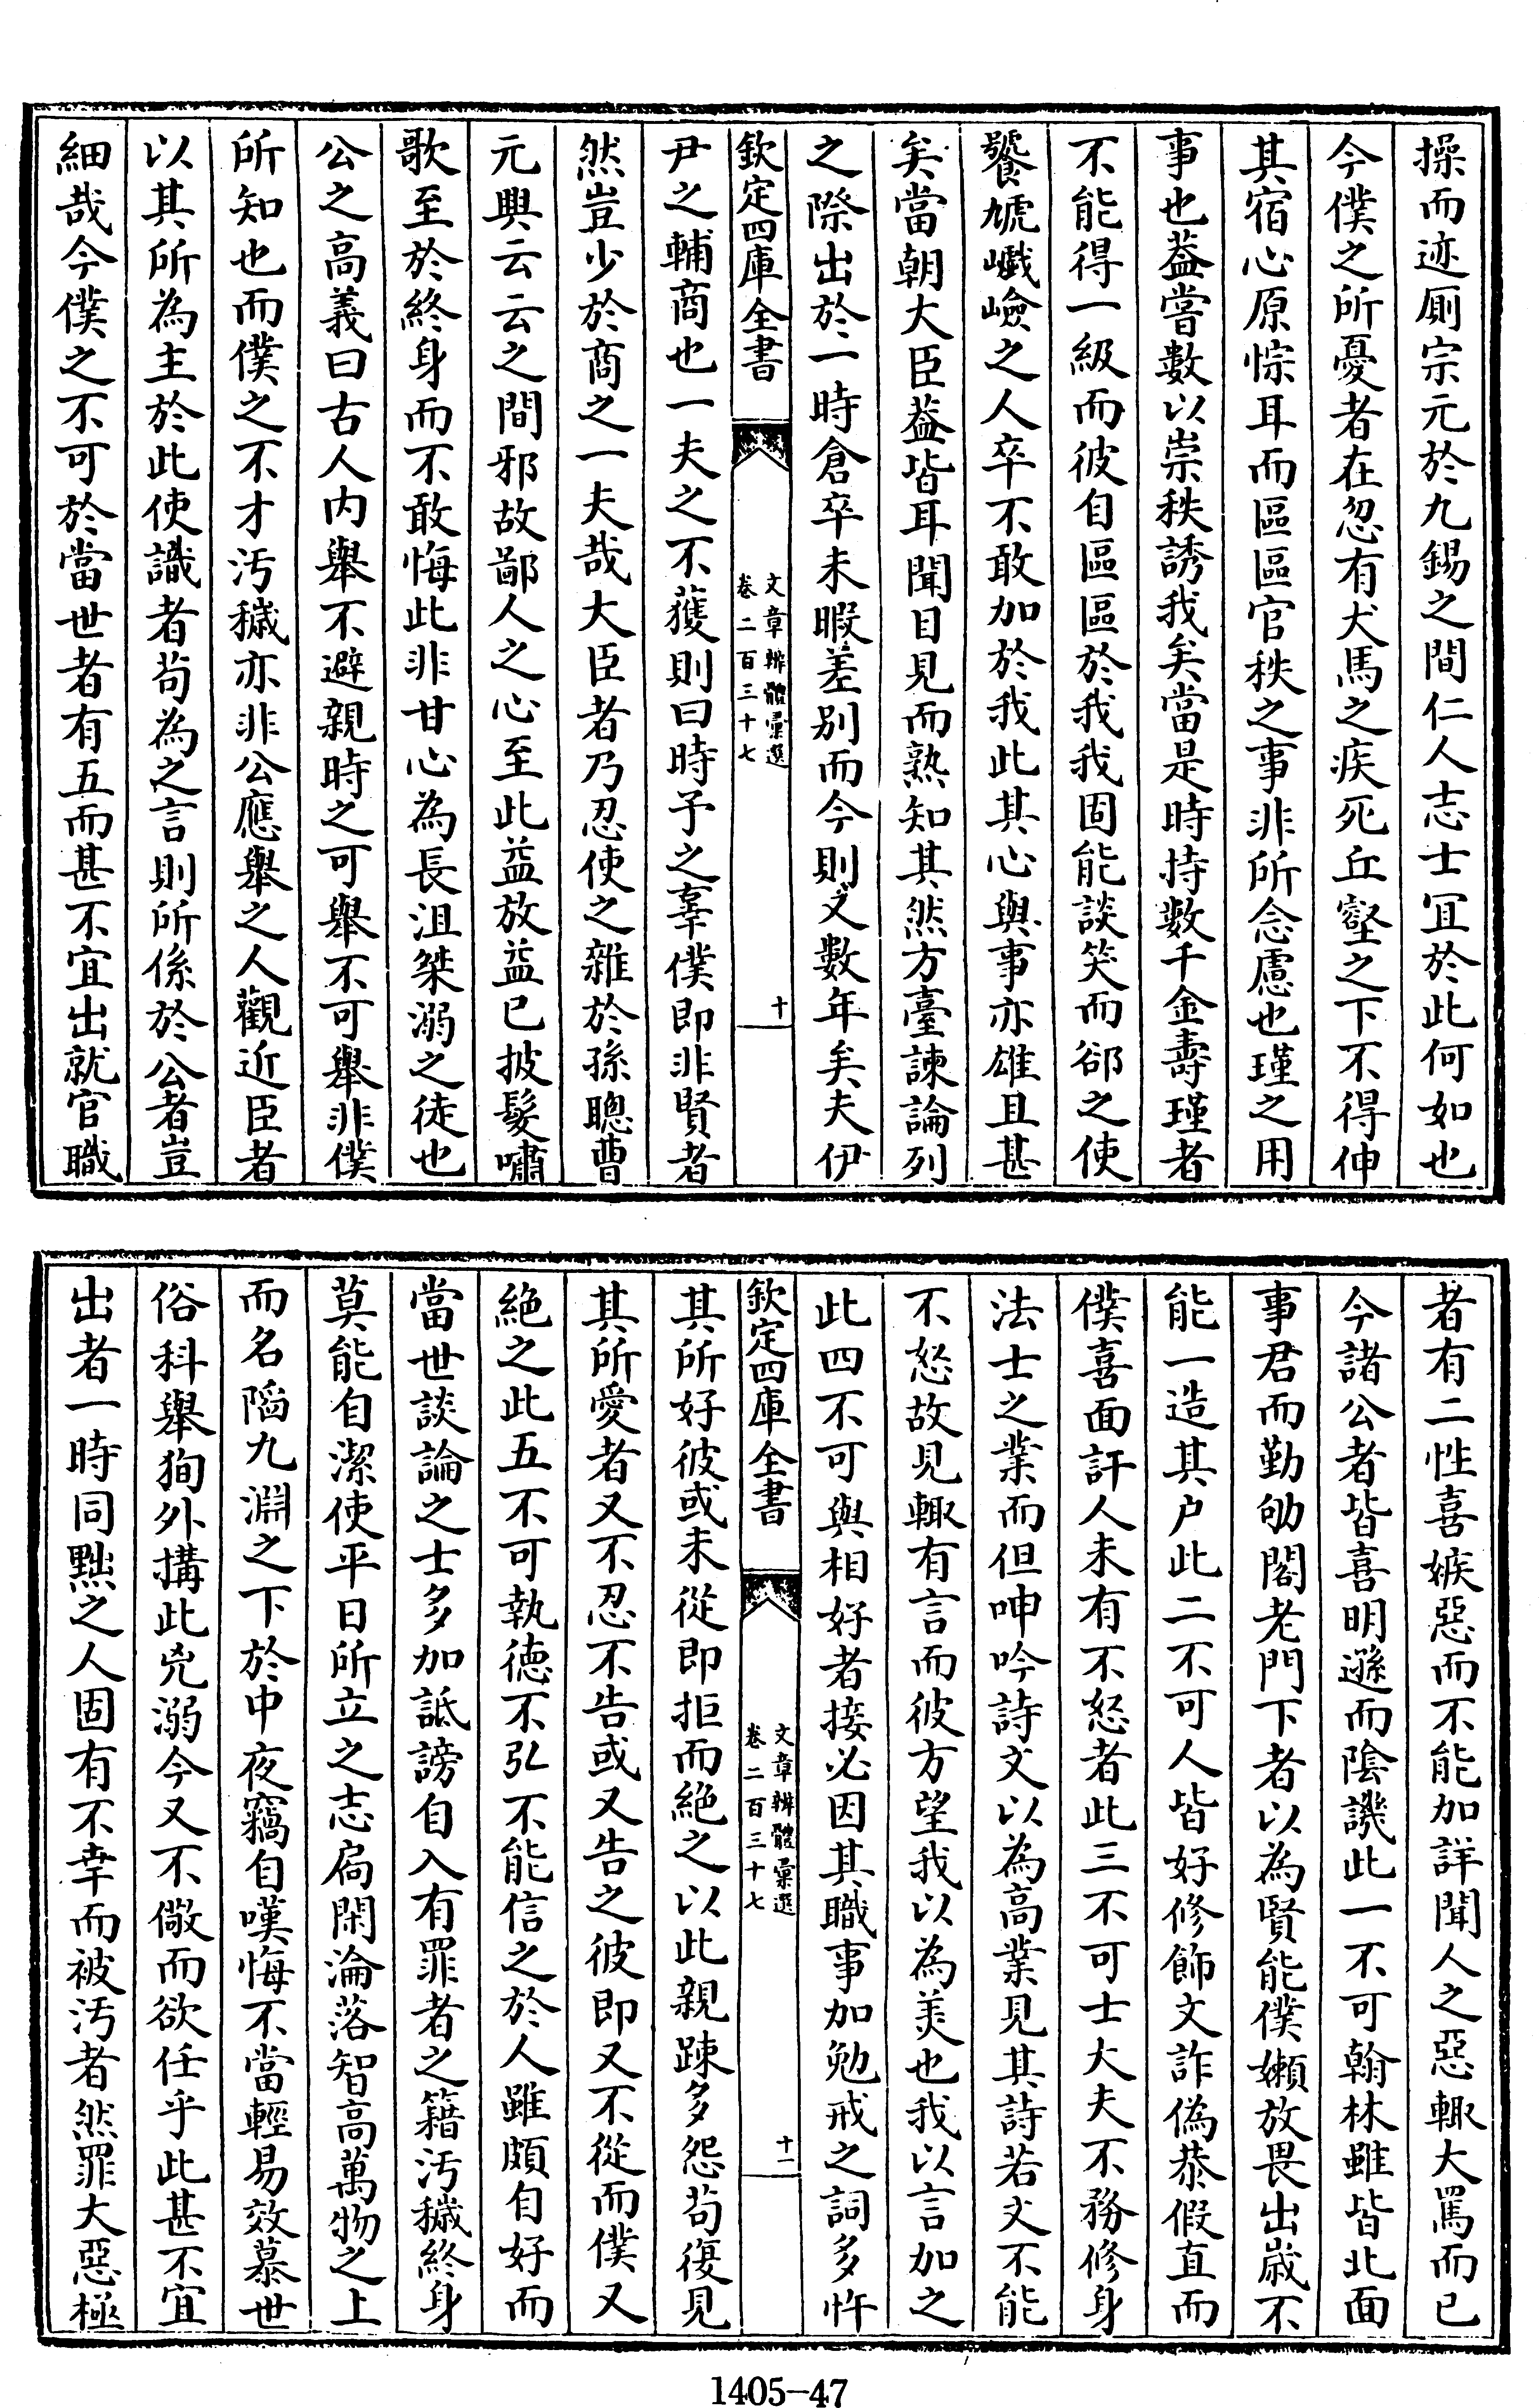 操而迹厠宗元於九錫之間仁人志士冝於此何如也
今僕之所憂者在忽有犬馬之疾死丘壑之下不得伸
其宿心原悰耳而區區官秩之事非所念慮也瑾之用
事也葢嘗數以崇秩誘我矣當是時持數千金壽瑾者
不能得一級而彼自區區於我我固能談笑而郤之使
饕虓巇嶮之人卒不敢加於我此其心與事亦雄且甚
矣當朝大臣葢皆耳聞目見而熟知其然方臺諫論列
之際出於一時倉卒未暇差别而今則又數年矣夫伊
欽定四庫全書
文章辨體彚選
卷二百三十七
十
尹之輔商也一夫之不獲則曰時予之辜僕即非賢者
然豈少於商之一夫哉大臣者乃忍使之雜於孫聰曹
元興云云之間邪故鄙人之心至此益放益已披髮嘯
歌至於終身而不敢悔此非甘心為長沮桀溺之徒也
公之高義曰古人内舉不避親時之可舉不可舉非僕
所知也而僕之不才汚穢亦非公應舉之人觀近臣者
以其所為主於此使識者茍為之言則所係於公者豈
細哉今僕之不可於當世者有五而甚不宜出就官職
者有二性喜嫉惡而不能加詳聞人之惡輙大罵而已
今諸公者皆喜明遜而陰譏此一不可翰林雖皆北面
事君而勤劬閣老門下者以為賢能僕嬾放畏出嵗不
能一造其户此二不可人皆好修飾文詐偽恭假直而
僕喜面訐人未有不怒者此三不可士大夫不務修身
法士之業而但呻吟詩文以為高業見其詩若文不能
不怒故見輙有言而彼方望我以為美也我以言加之
此四不可與相好者接必因其職事加勉戒之詞多忤
欽定四庫全書
文章辨體彚選
卷二百三十七
十一
其所好彼或未從即拒而絶之以此親踈多怨茍復見
其所愛者又不忍不告或又告之彼即又不從而僕又
絶之此五不可執德不弘不能信之於人雖頗自好而
當世談論之士多加詆謗自入有罪者之籍汚穢終身
莫能自潔使平日所立之志扃閑淪落智高萬物之上
而名陷九淵之下於中夜竊自嘆悔不當輕易效慕世
俗科舉狥外搆此兇溺今又不儆而欲任乎此甚不宜
出者一時同黜之人固有不幸而被汚者然罪大惡極
1405-47